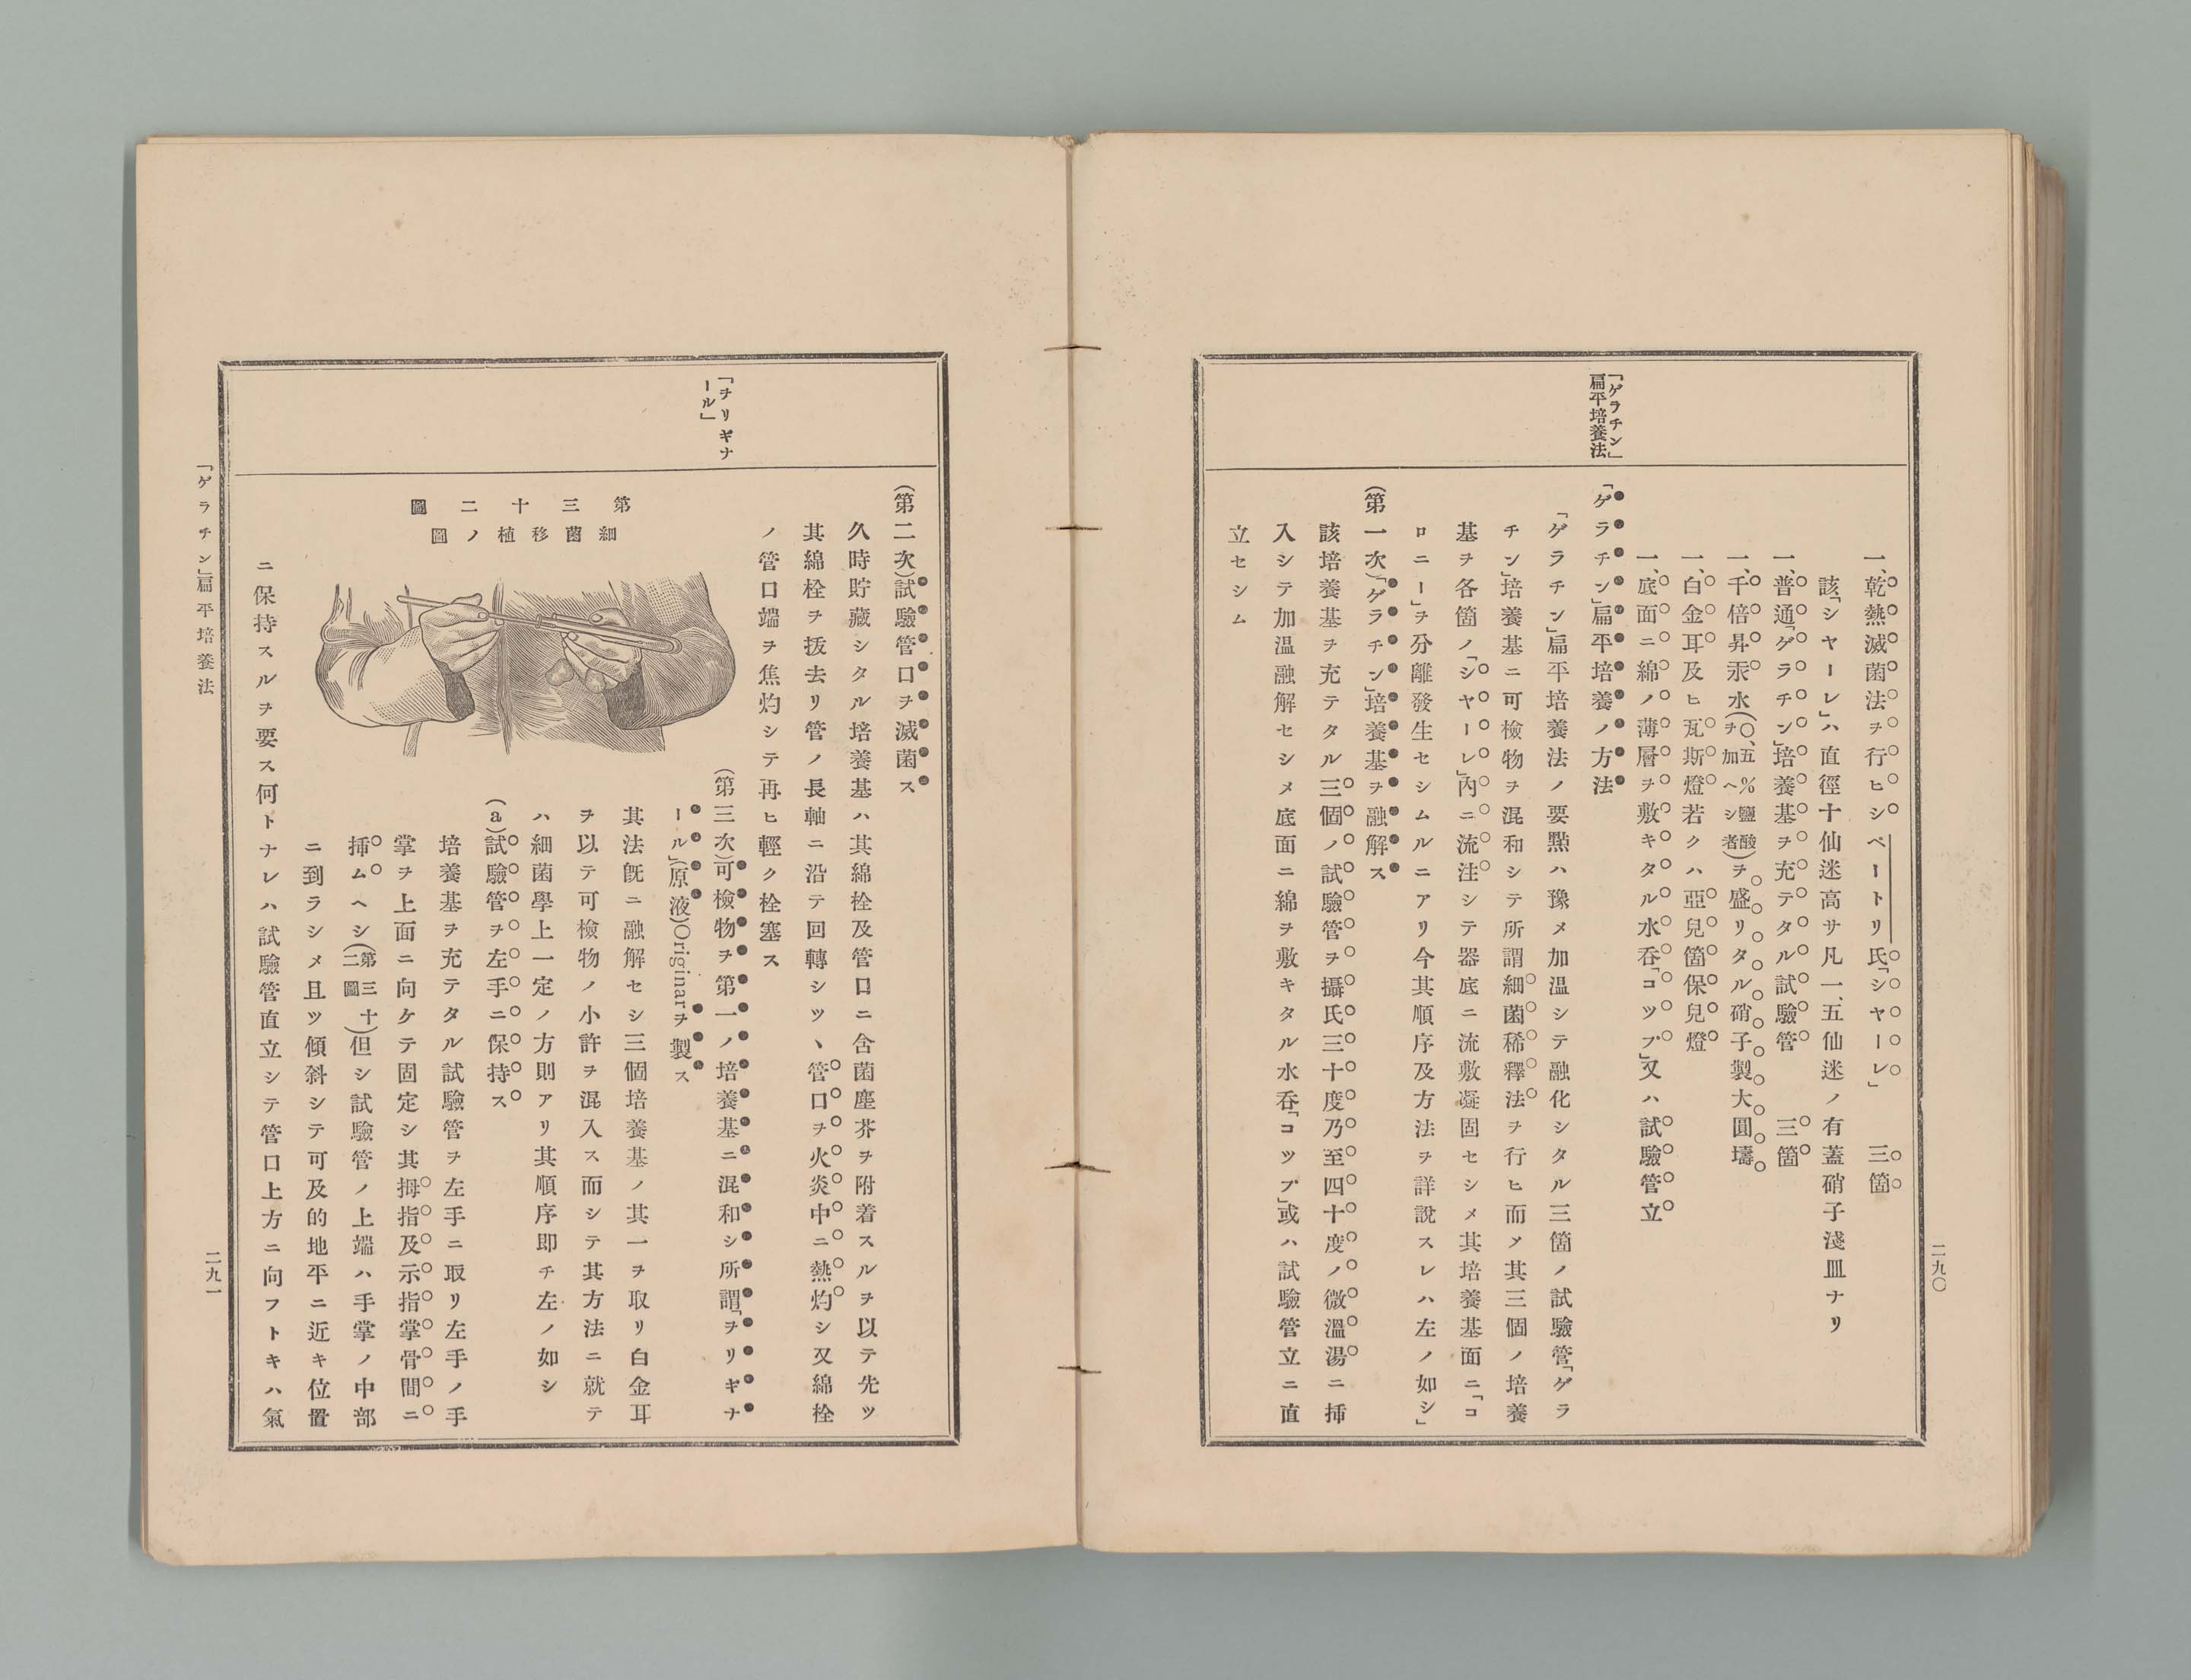 二九〇
「ゲラチン」
扁平培養法
一、乾熱滅菌法ヲ行ヒシペートリ氏「シヤーレ」　三箇
該「シヤーレ」ハ直徑十仙迷高サ凡一、五仙迷ノ有蓋硝子淺皿ナリ
一、普通「ゲラチン」培養基ヲ充テタル試驗管　三箇
一、千倍昇汞水(〇、五%鹽酸ヲ加ヘシ者)ヲ盛リタル硝子製大圓壔
一、白金耳及ヒ瓦斯燈若クハ亞兒箇保兒燈
一、底面ニ綿ノ薄層ヲ敷キタル水呑「コツプ」又ハ試驗管立
「ゲラチン」扁平培養ノ方法
「ゲラチン」扁平培養法ノ要點ハ豫メ加温シテ融化シタル三箇ノ試驗管「ゲラ
チン」培養基ニ可檢物ヲ混和シテ所謂細菌稀釋法ヲ行ヒ而メ其三個ノ培養
基ヲ各箇ノ「シヤーレ」內ニ流注シテ器底ニ流敷凝固セシメ其培養基面ニ「コ
ロニー」ヲ分離發生セシムルニアリ今其順序及方法ヲ詳說スレハ左ノ如シ」
(第一次)「ゲラチン」培養基ヲ融解ス
該培養基ヲ充テタル三個ノ試驗管ヲ攝氏三十度乃至四十度ノ微溫湯ニ挿
入シテ加溫融解セシメ底面ニ綿ヲ敷キタル水呑「コツプ」或ハ試驗管立ニ直
立セシム
「ヲリギナ
ール」
(第二次)試驗管口ヲ滅菌ス
久時貯藏シタル培養基ハ其綿栓及管口ニ含菌塵芥ヲ附着スルヲ以テ先ツ
其綿栓ヲ拔去リ管ノ長軸ニ沿テ回轉シツヽ管口ヲ火炎中ニ熱灼シ又綿栓
ノ管口端ヲ焦灼シテ再ヒ輕ク栓塞ス
第三十二圖
細菌移植ノ圖
(第三次)可檢物ヲ第一ノ培養基ニ混和シ所謂「ヲリギナ
ール」(原液)Originarヲ製ス
其法旣ニ融解セシ三個培養基ノ其一ヲ取リ白金耳
ヲ以テ可檢物ノ小許ヲ混入ス而シテ其方法ニ就テ
ハ細菌學上一定ノ方則アリ其順序即チ左ノ如シ
(a)試驗管ヲ左手ニ保持ス
培養基ヲ充テタル試驗管ヲ左手ニ取リ左手ノ手
掌ヲ上面ニ向ケテ固定シ其拇指及示指掌骨間ニ
挿ムヘシ(第三十二圖)但シ試驗管ノ上端ハ手掌ノ中部
ニ到ラシメ且ツ傾斜シテ可及的地平ニ近キ位置
ニ保持スルヲ要ス何トナレハ試驗管直立シテ管口上方ニ向フトキハ氣
「ゲラチン」扁平培養法
二九一